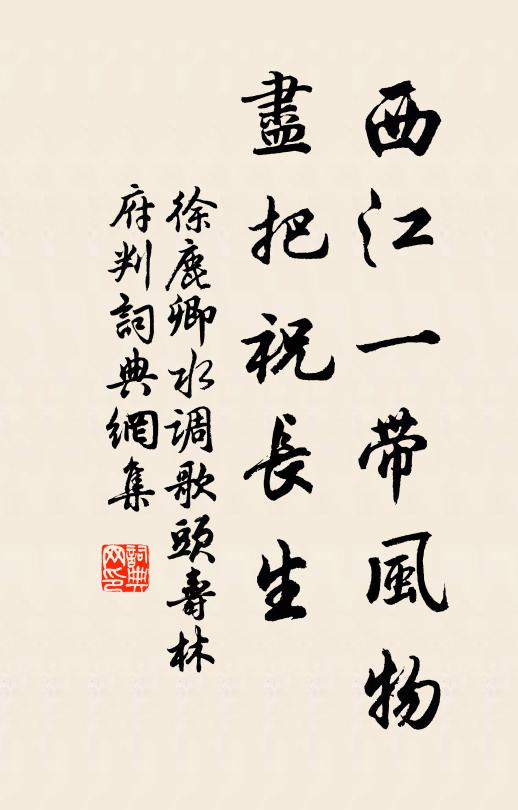 西江一帶風物
盡把祝長生
徐鹿卿水调歌頭壽林
府判詞典網集
詞典网印